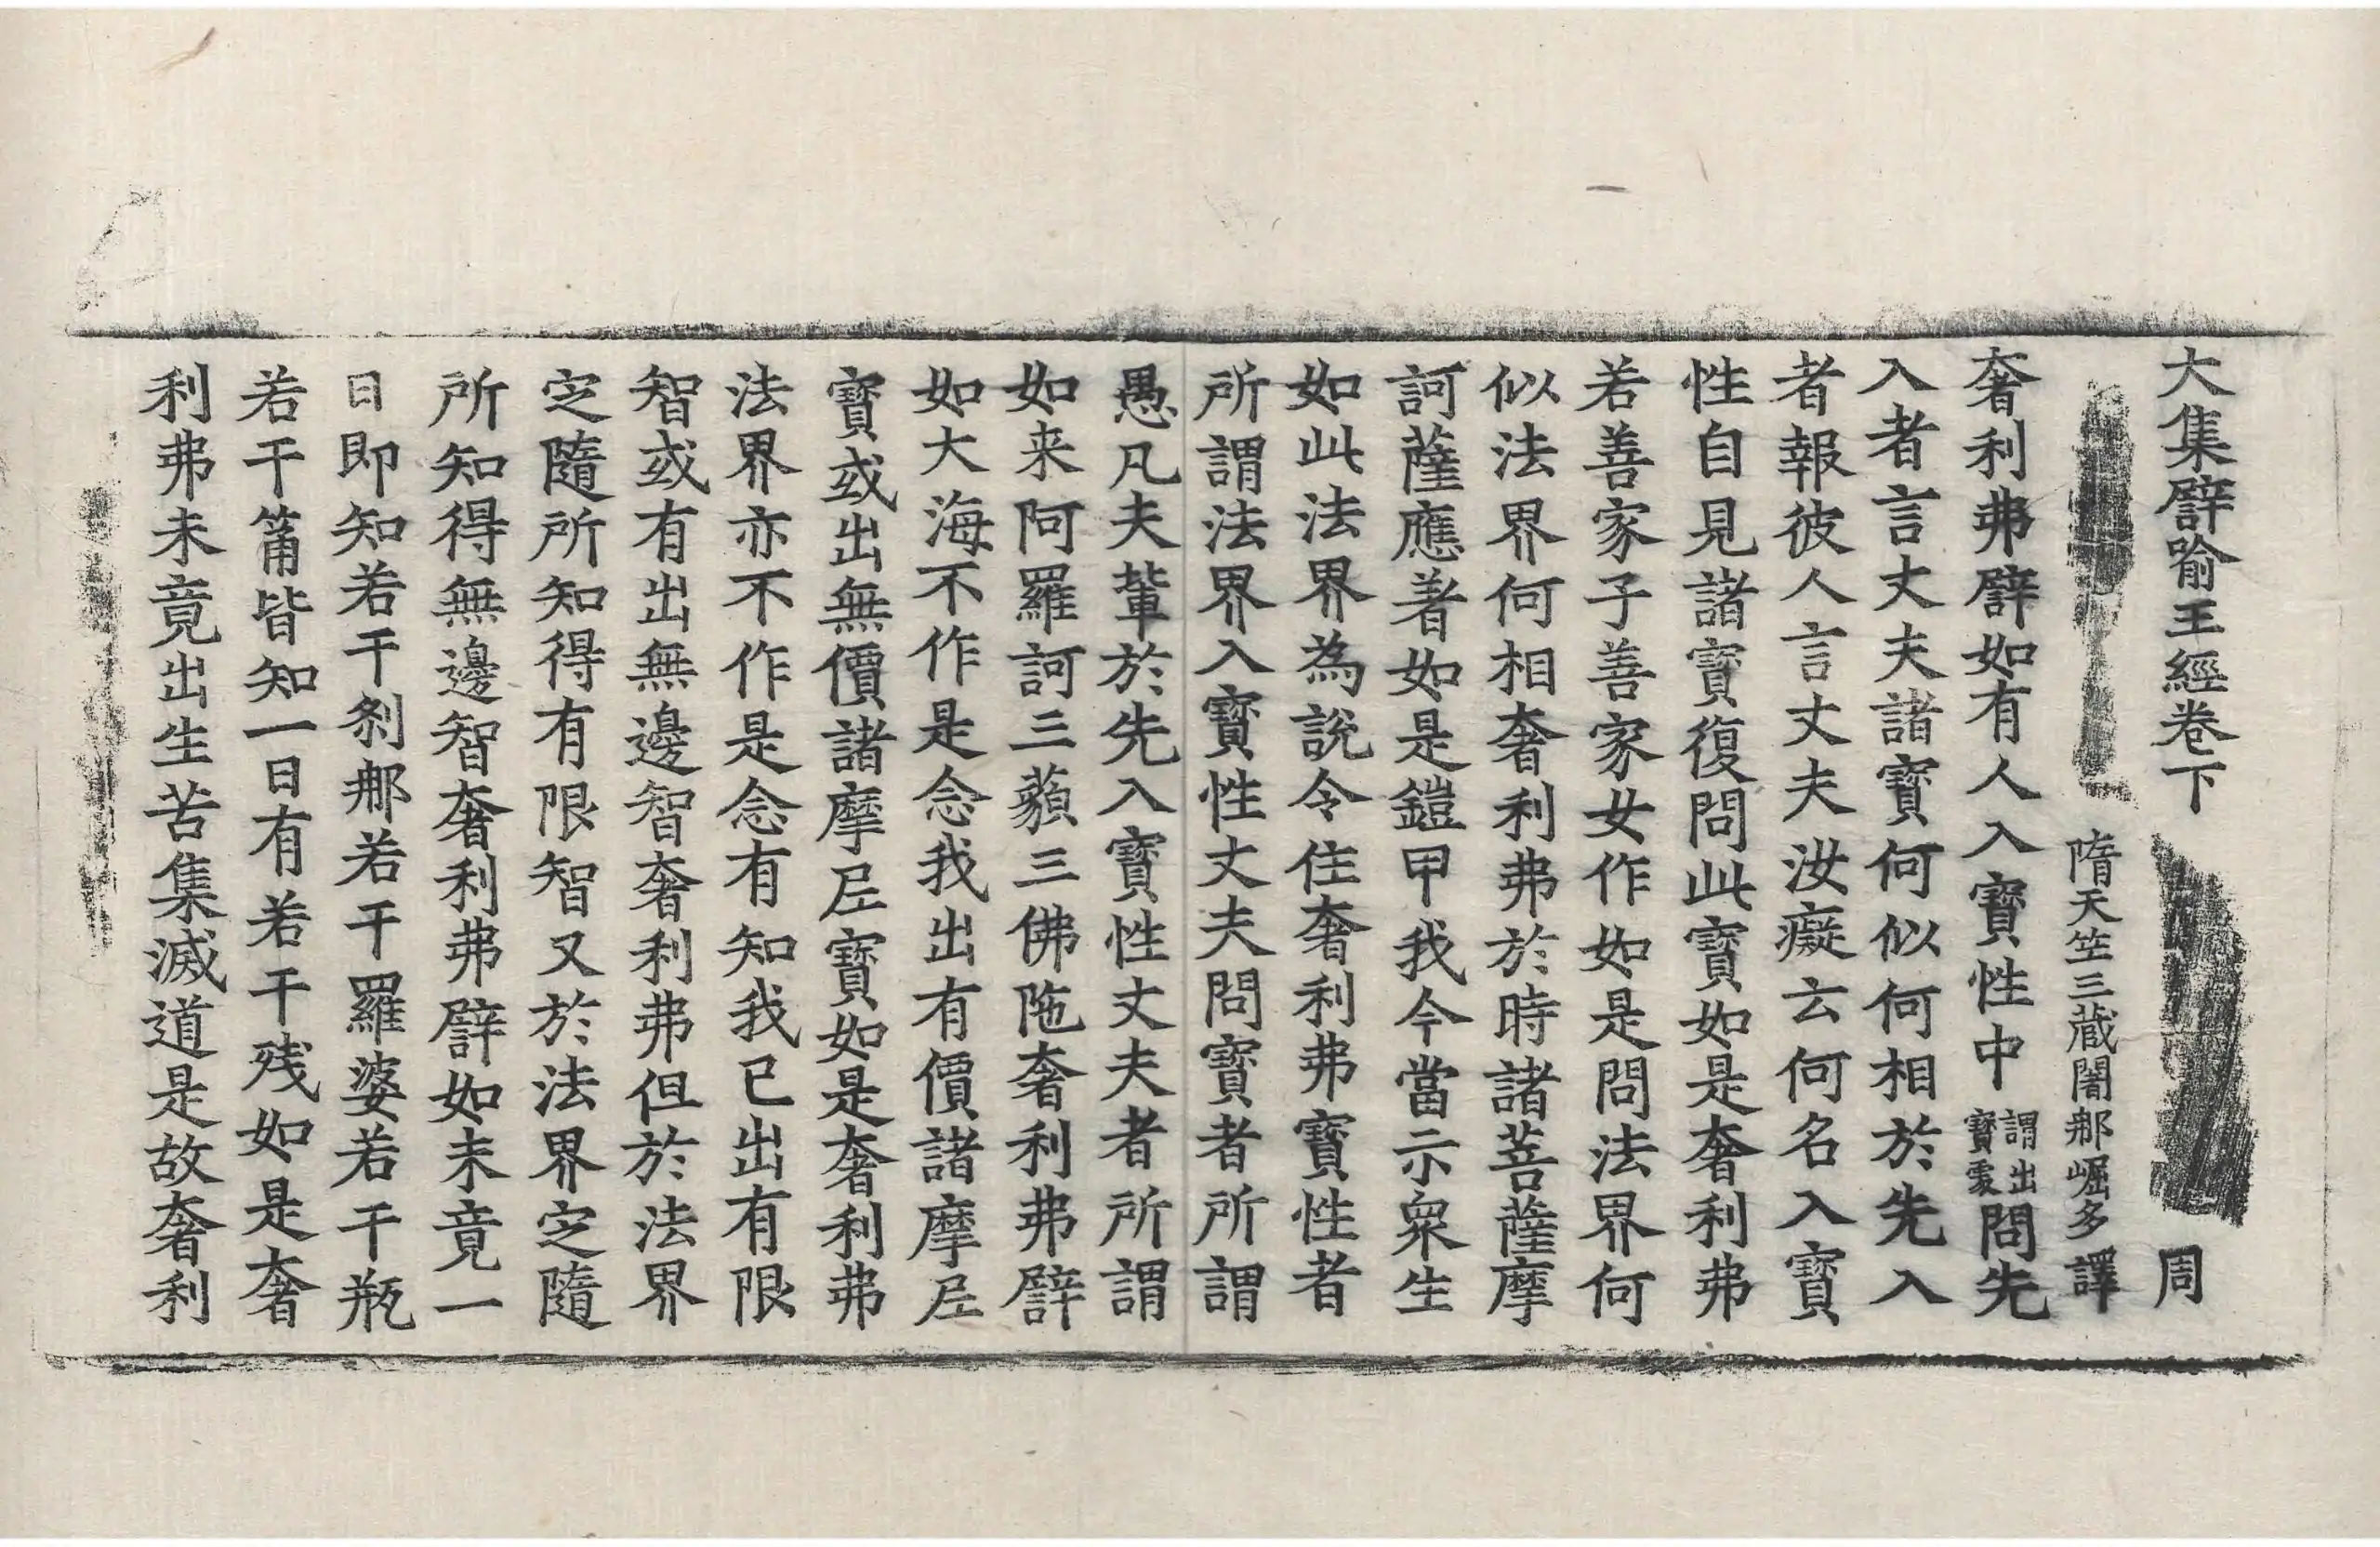 大集譬喻王經卷下 周
隋天竺三藏闍那崛多譯
奢利弗譬如有人入寶性中謂出寶處問先
入者言丈夫諸寶何似何相於先入
者報彼人言丈夫汝癡云何名入寶
性自見諸寶復問此寶如是奢利弗
若善家子善家女作如是問法界何
似法界何相奢利弗於時諸菩薩摩
訶薩應著如是鎧甲我今當示衆生
如此法界為說令住奢利弗寶性者
所謂法界入寶性丈夫問寶者所謂
愚凡夫輩於先入寶性丈夫者所謂
如来阿羅訶三藐三佛陁奢利弗譬
如大海不作是念我出有價諸摩尼
寶或出無價諸摩尼寶如是奢利弗
法界亦不作是念有知我已出有限
智或有出無邊智奢利弗但於法界
定隨所知得有限智又於法界定隨
所知得無邊智奢利弗譬如未竟一
日即知若干剎那若干羅婆若干瓶
若干筩皆知一日有若干残如是奢
利弗未竟出生苦集滅道是故奢利